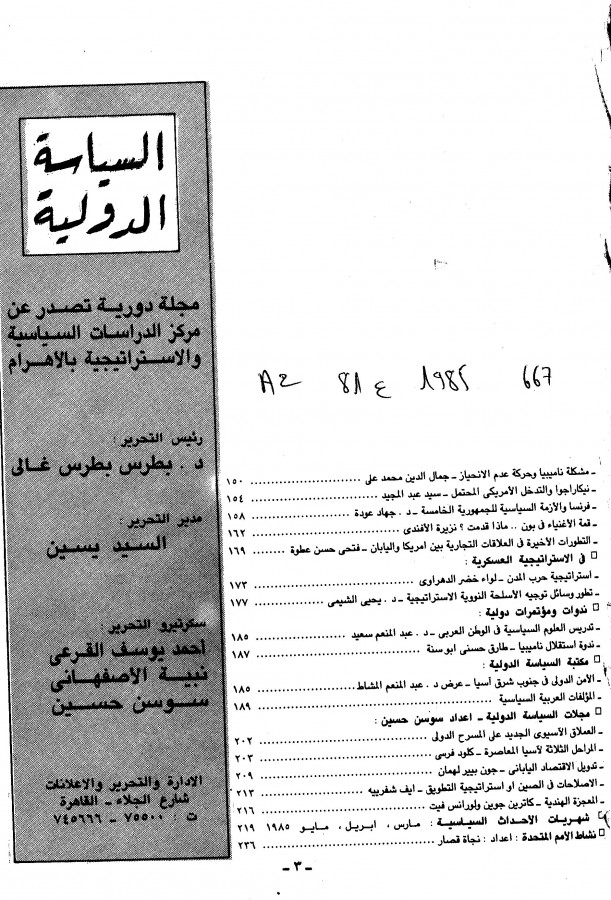 السياسة
الدولية
مجلة دورية تصدر عن
مركز الدراسات السياسية
والاستراتيجية بالأهرام
رئيس التحرير :
د . بطرس بطرس غالى
مدير التحرير :
السيد يسين
سكرتيرو التحرير :
أحمد يوسف القرعى
نبية الأصفهانى
سوسن حسين
الادارة والتحرير والاعلانات
شارع الجلاء - القاهرة
ت : ٧٥٥٠٠ - ٧٤٥٦٦٦
A2 81 ع 1985 667
ـ مشكلة ناميبيا وحركة عدم الانحياز ـ جمال الدين محمد على ١٥٠
ـ نيكاراجوا والتدخل الأمريكى المحتمل ـ سيد عبد المجيد ١٥٤
ـ فرنسا والأزمة السياسية للجمهورية الخامسة ـ د . جهاد عودة ١٥٨
ـ قمة الأغنياء فى بون .. ماذا قدمت ؟ نزيرة الأفندى ١٦٢
ـ التطورات الأخيرة فى العلاقات التجارية بين امريكا واليابان ـ فتحى حسن عطوة ١٦٩
□ فى الاستراتيجية العسكرية :
ـ استراتيجية حرب المدن ـ لواء خضر الدهراوى ١٧٣
ـ تطور وسائل توجيه الأسلحة النووية الاستراتيجية ـ د . يحيى الشيمى ١٧٧
□ ندوات ومؤتمرات دولية :
ـ تدريس العلوم السياسية فى الوطن العربى ـ د . عبد المنعم سعيد ١٨٥
ـ ندوة استقلال ناميبيا ـ طارق حسنى ابو سنة ١٨٧
□ مكتبة السياسة الدولية :
ـ الأمن الدولى فى جنوب شرق آسيا ـ عرض د . عبد المنعم المشاط ١٨٥
ـ المؤلفات العربية السياسية ١٨٩
□ مجلات السياسة الدولية ـ اعداد سوسن حسين :
ـ العملاق الآسيوى الجديد على المسرح الدولى ٢٠٢
ـ المراحل الثلاثة لآسيا المعاصرة ـ كلود فرسى ٢٠٣
ـ تدويل الاقتصاد اليابانى ـ جون بيير لهمان ٢٠٩
ـ الاصلاحات فى الصين او استراتيجية التطويق ـ ايف شفرييه ٢١٣
ـ المعجزة الهندية ـ كاترين جوين ولورانس فيت ٢١٦
□ شهريات الأحداث السياسية : مارس ، ابريل ، مايو ١٩٨٥ ٢١٩
□ نشاط الأمم المتحدة : اعداد : نجاة قصار ٢٣٦
ـ ٣ ـ